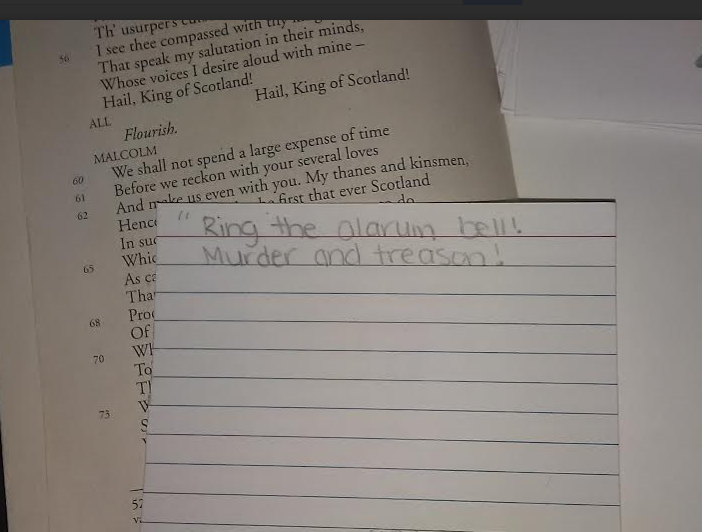 Th' usurper's
56 I see thee compassed with thy
That speak my salutation in their minds,
Whose voices I desire aloud with mine –
Hail, King of Scotland!
ALL Hail, King of Scotland!
Flourish.
MALCOLM
60 We shall not spend a large expense of time
61 Before we reckon with your several loves
62 And make us even with you. My thanes and kinsmen,
Hence first that ever Scotland
In suc do
65 Whic
As ca
Tha
68 Pro
Of
70 Wh
To
Th
73 W
S
52
" Ring the alarum bell!
Murder and treason!